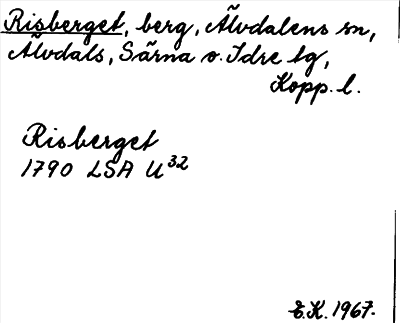 Risberget, berg, Älvdalens sn,
Älvdals, Särna o. Idre tg,
Kopp. l.
Risberget
1790 LSA U 32
E.K. 1967.